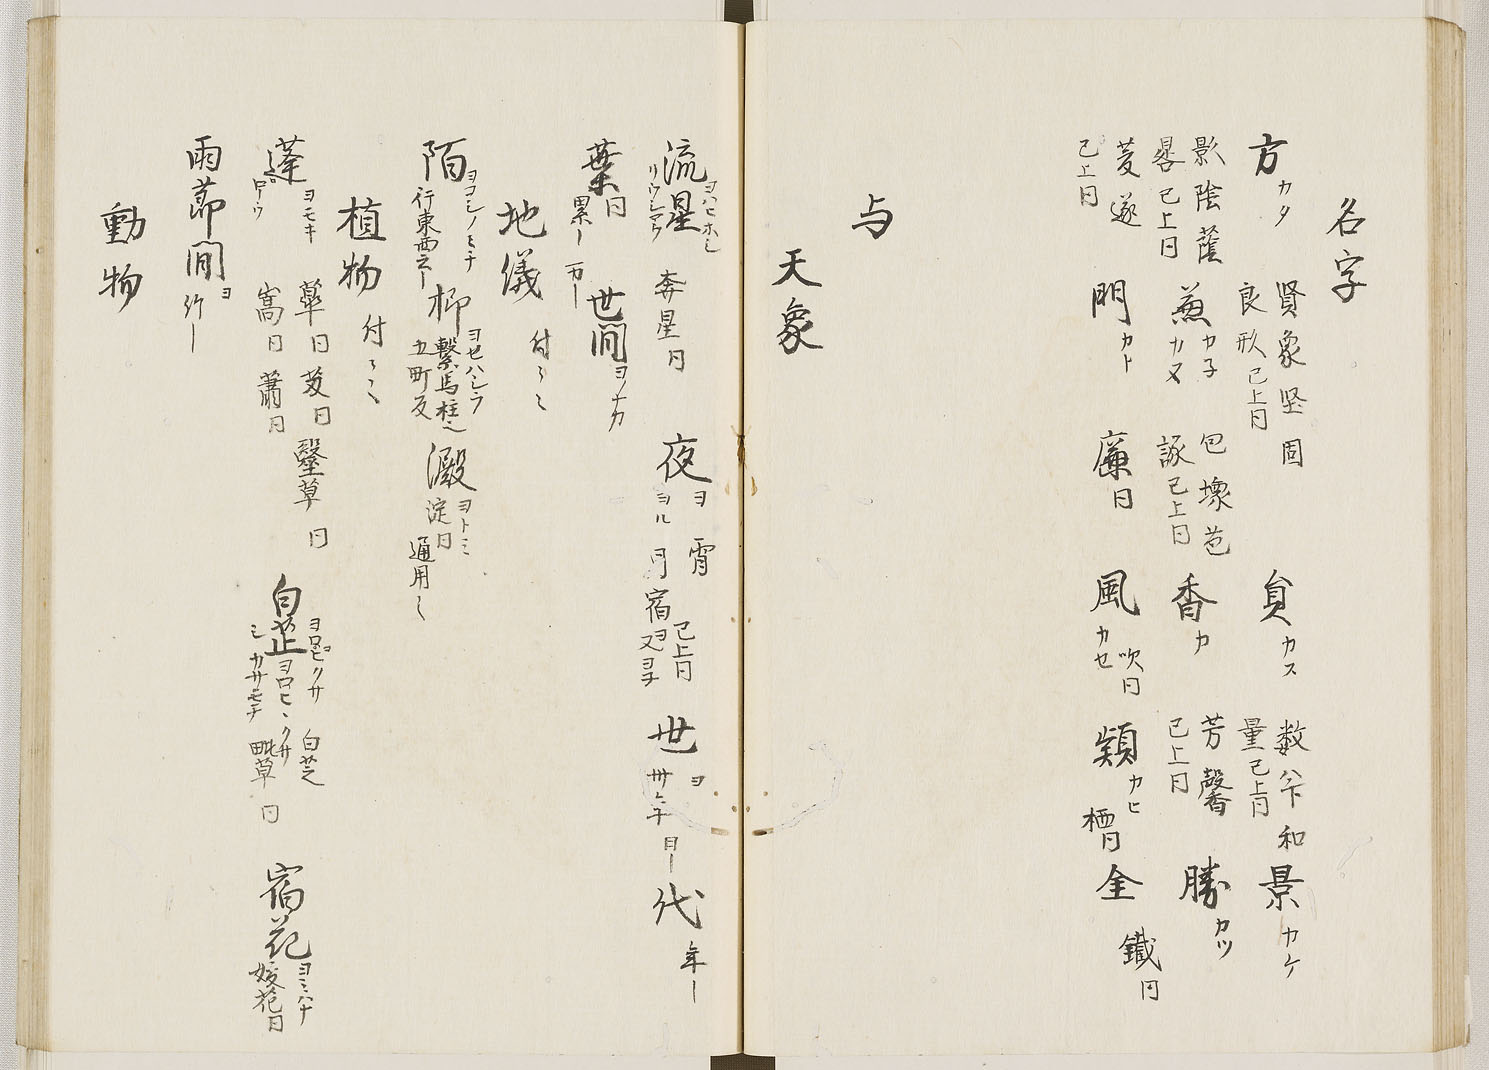 名字
方 カタ 賢象堅固 良形已上同 員 カス 数 和 量已上同 景 カケ
影陰蔭 晷已上同 兼 カ子 カヌ 包壊苞 詠已上同 香 カ 芳馨 已上同 勝 カツ
菱遂 已上同 門 カト 廉同 風 カセ 吹同 頴 カヒ 栖同 全 鐵同
与
天象
流星 ヨハヒホシ リウシヤウ 奔星同 夜 ヨ ヨル 宵同宿 已上同 又ヨヨ子 世 ヨ 丗年 同ー 代 年ー
葉同 累ー 万ー 世間 ヨノナカ
地儀 付
陌 ヨコシノミチ 行東西云ー 柳 ヨセハシラ 繋馬柱之 五町反 澱 ヨトミ 淀同 通用
植物 付
蓬 ヨモキ 蕐同 苃同 蒿同 蕭同 醫草同 白芷 ヨロヒクサ ヨロヒヽクサ カサモチ 白芝 毗草同 宿花 ヨミハナ 媛花同
雨節間 ヨ 竹ー
動物